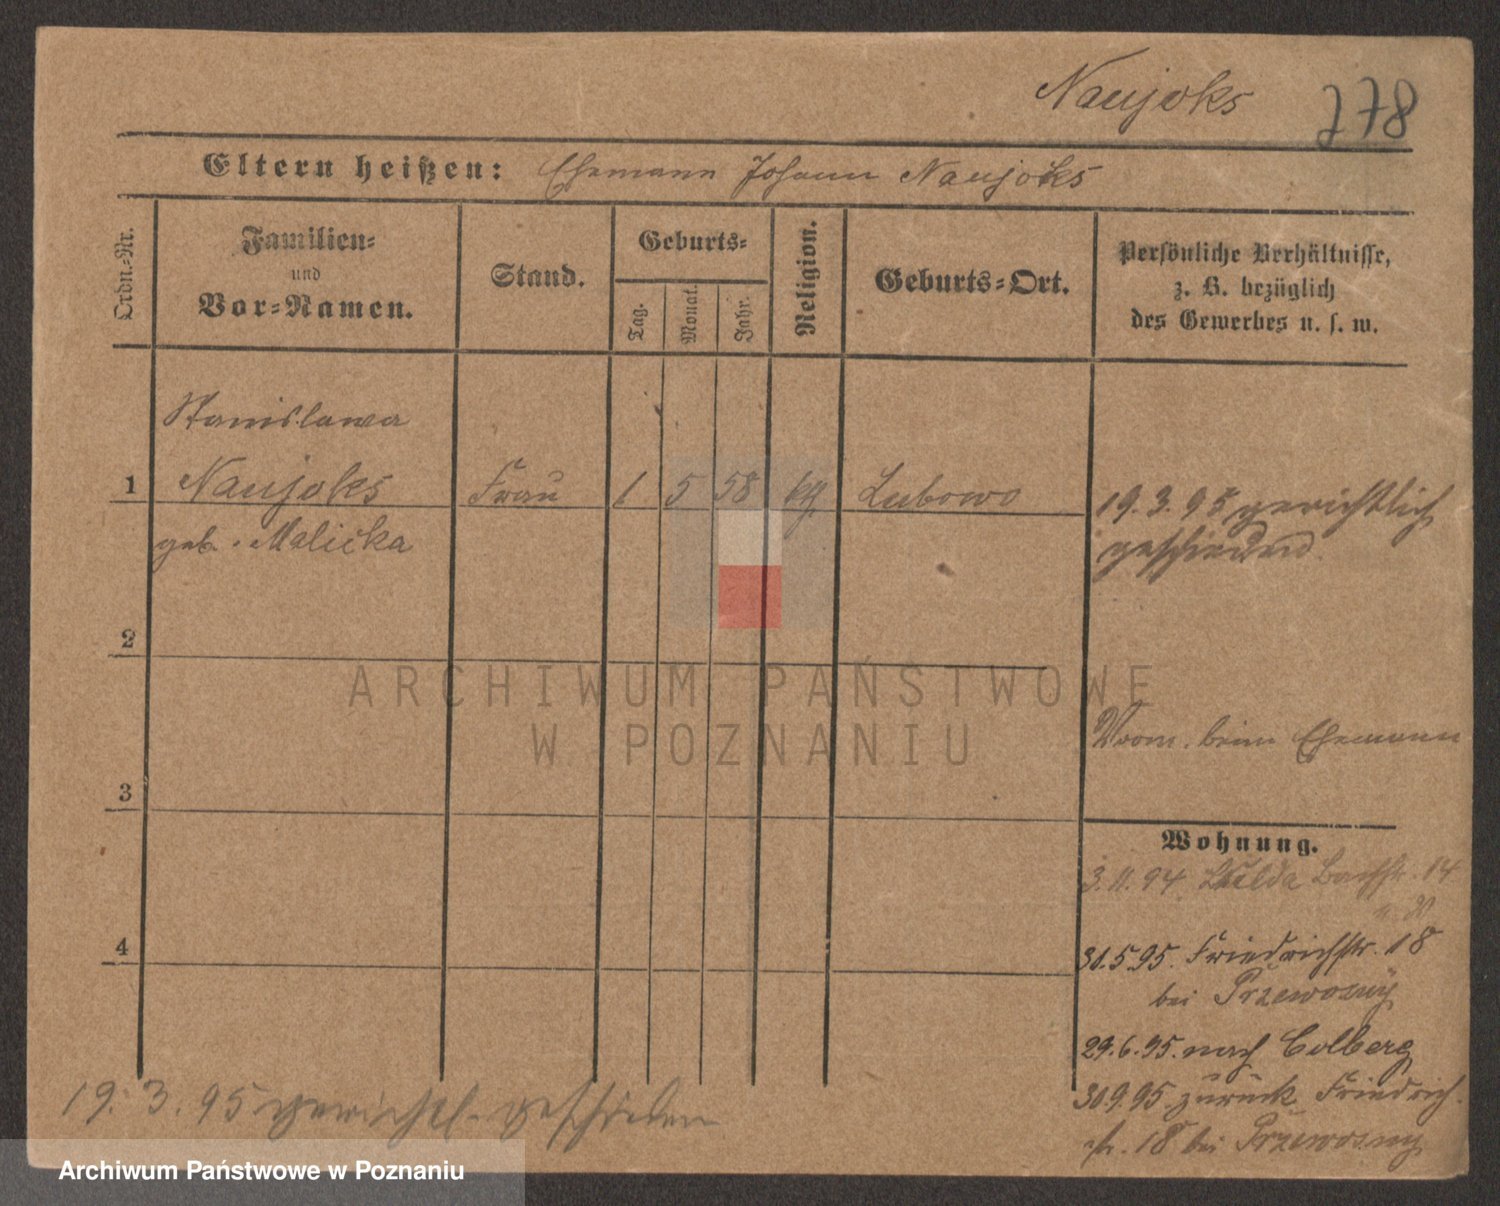 Naujoks 778
Eltern heißen: Ehemann Johann Naujoks
Ordn.-Nr.
Familien-
und
Vor-Namen.
Stand.
Geburts-
Tag.
Monat.
Jahr.
Religion.
Geburts-Ort.
Persönliche Verhältnisse,
z. B. bezüglich
des Gewerbes u. s. w.
Stanislawa
1 Naujoks Frau 1 5 58 kth. Lubowo
geb. Malicka
19. 3. 95 gerichtlich
geschieden.
2
ARCHIWUM PAŃSTWOWE
W POZNANIU
beim Ehemann
3
Wohnung.
3. 11. 94. Wilda Bachstr. 14
" 30
31. 5. 95. Friedrichstr. 18
bei Przewosny
4
29. 6. 95. nach Colberg
30 9. 95. zurück Friedrich-
str. 18 bei Przewosny
19. 3. 95 gerichtl. geschieden
Archiwum Państwowe w Poznaniu